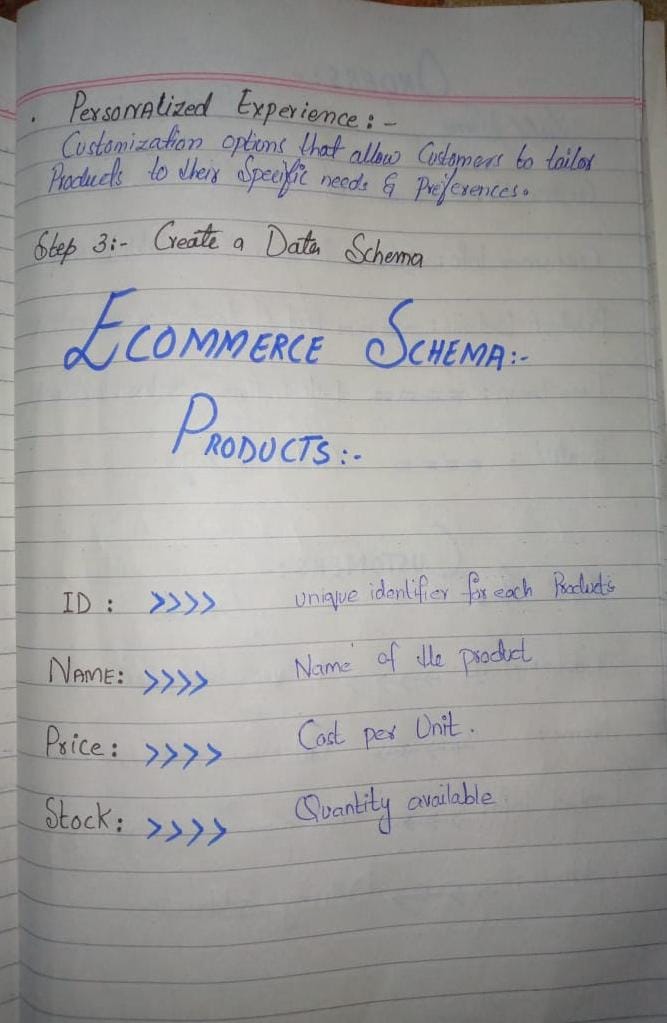 . Personalized Experience :-
Customization options that allow Customers to tailor
Products to their Specific needs & Preferences.
Step 3:- Create a Data Schema
ECOMMERCE SCHEMA:-
PRODUCTS:-
ID : >>>> unique identifier for each Products
NAME: >>>> Name of the product
Price: >>>> Cost per Unit.
Stock: >>>> Quantity available